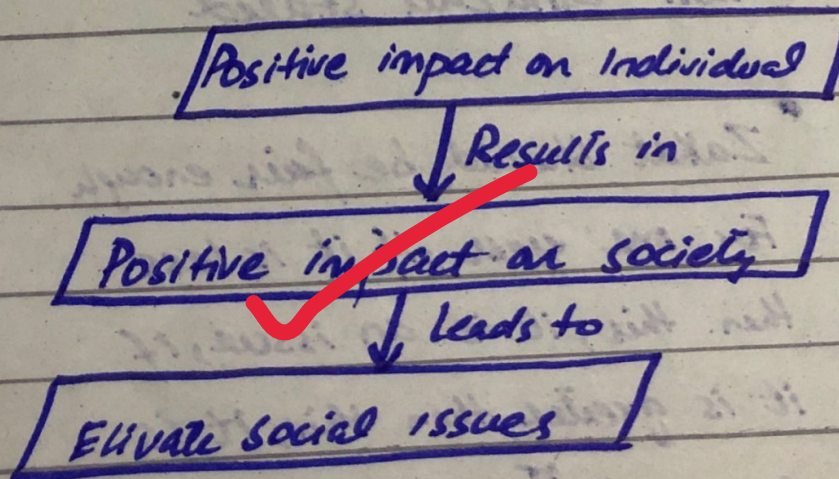 Positive impact on Individual
Results in
Positive impact on society
leads to
Elivate social issues